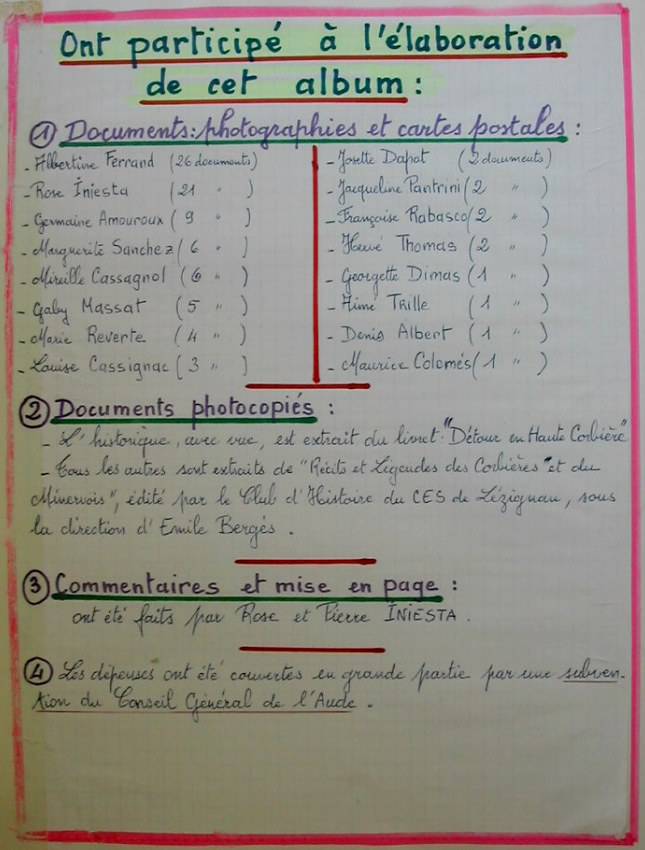 Ont participé à l'élaboration
de cet album :
① Documents : photographies et cartes postales :
- Albertine Ferrand (26 documents)
- Rose Iniesta (21 " )
- Germaine Amouroux ( 9 " )
- Marguerite Sanchez ( 6 " )
- Mireille Cassagnol ( 6 " )
- Gaby Massat ( 5 " )
- Marie Reverte ( 4 " )
- Louise Cassignac ( 3 " )
- Josette Dapot (2 documents)
- Jacqueline Pantrini ( 2 " )
- Françoise Rabasco ( 2 " )
- Hervé Thomas ( 2 " )
- Georgette Dimas ( 1 " )
- Aimé Trille ( 1 " )
- Denis Albert ( 1 " )
- Maurice Colomés ( 1 " )
② Documents photocopiés :
- L'historique, avec vue, est extrait du livret "Détour en Haute Corbière"
- Tous les autres sont extraits de "Récits et Légendes des Corbières et du
Minervois", édité par le Club d'Histoire du CES de Lézignan, sous
la direction d'Emile Bergès.
③ Commentaires et mise en page :
ont été faits par Rose et Pierre INIESTA.
④ Les dépenses ont été couvertes en grande partie par une subven-
tion du Conseil Général de l'Aude.